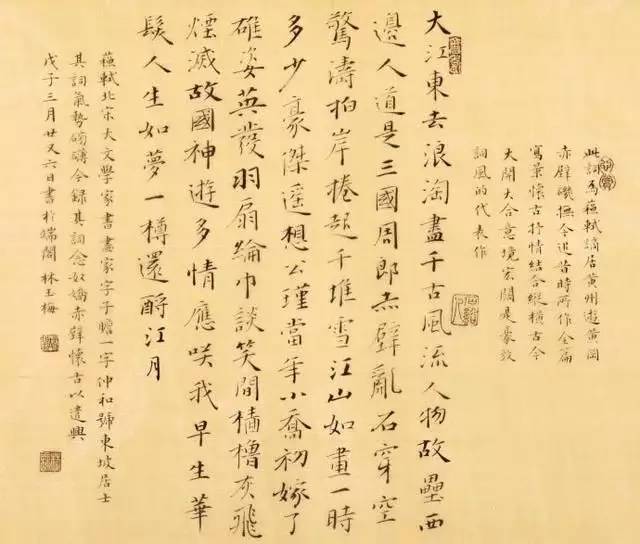 此詞爲蘇軾謫居黃州遊黃岡
赤壁磯撫今追昔時所作全篇
寫景懷古抒情結合縱橫古今
大開大合意境宏闊豪放
詞風的代表作
大江東去浪淘盡千古風流人物故壘西
邊人道是三國周郎赤壁亂石穿空
驚濤拍岸捲起千堆雪江山如畫一時
多少豪傑遥想公瑾當年小喬初嫁了
雄姿英發羽扇綸巾談笑間檣櫓灰飛
煙滅故國神遊多情應咲我早生華
髮人生如夢一樽還酹江月
蘇軾北宋大文學家書畫家字子瞻一字仲和號東坡居士
其詞氣勢磅礴今録其詞念奴嬌赤壁懷古以遣興
戊子三月廿又六日書於端閣 林玉梅